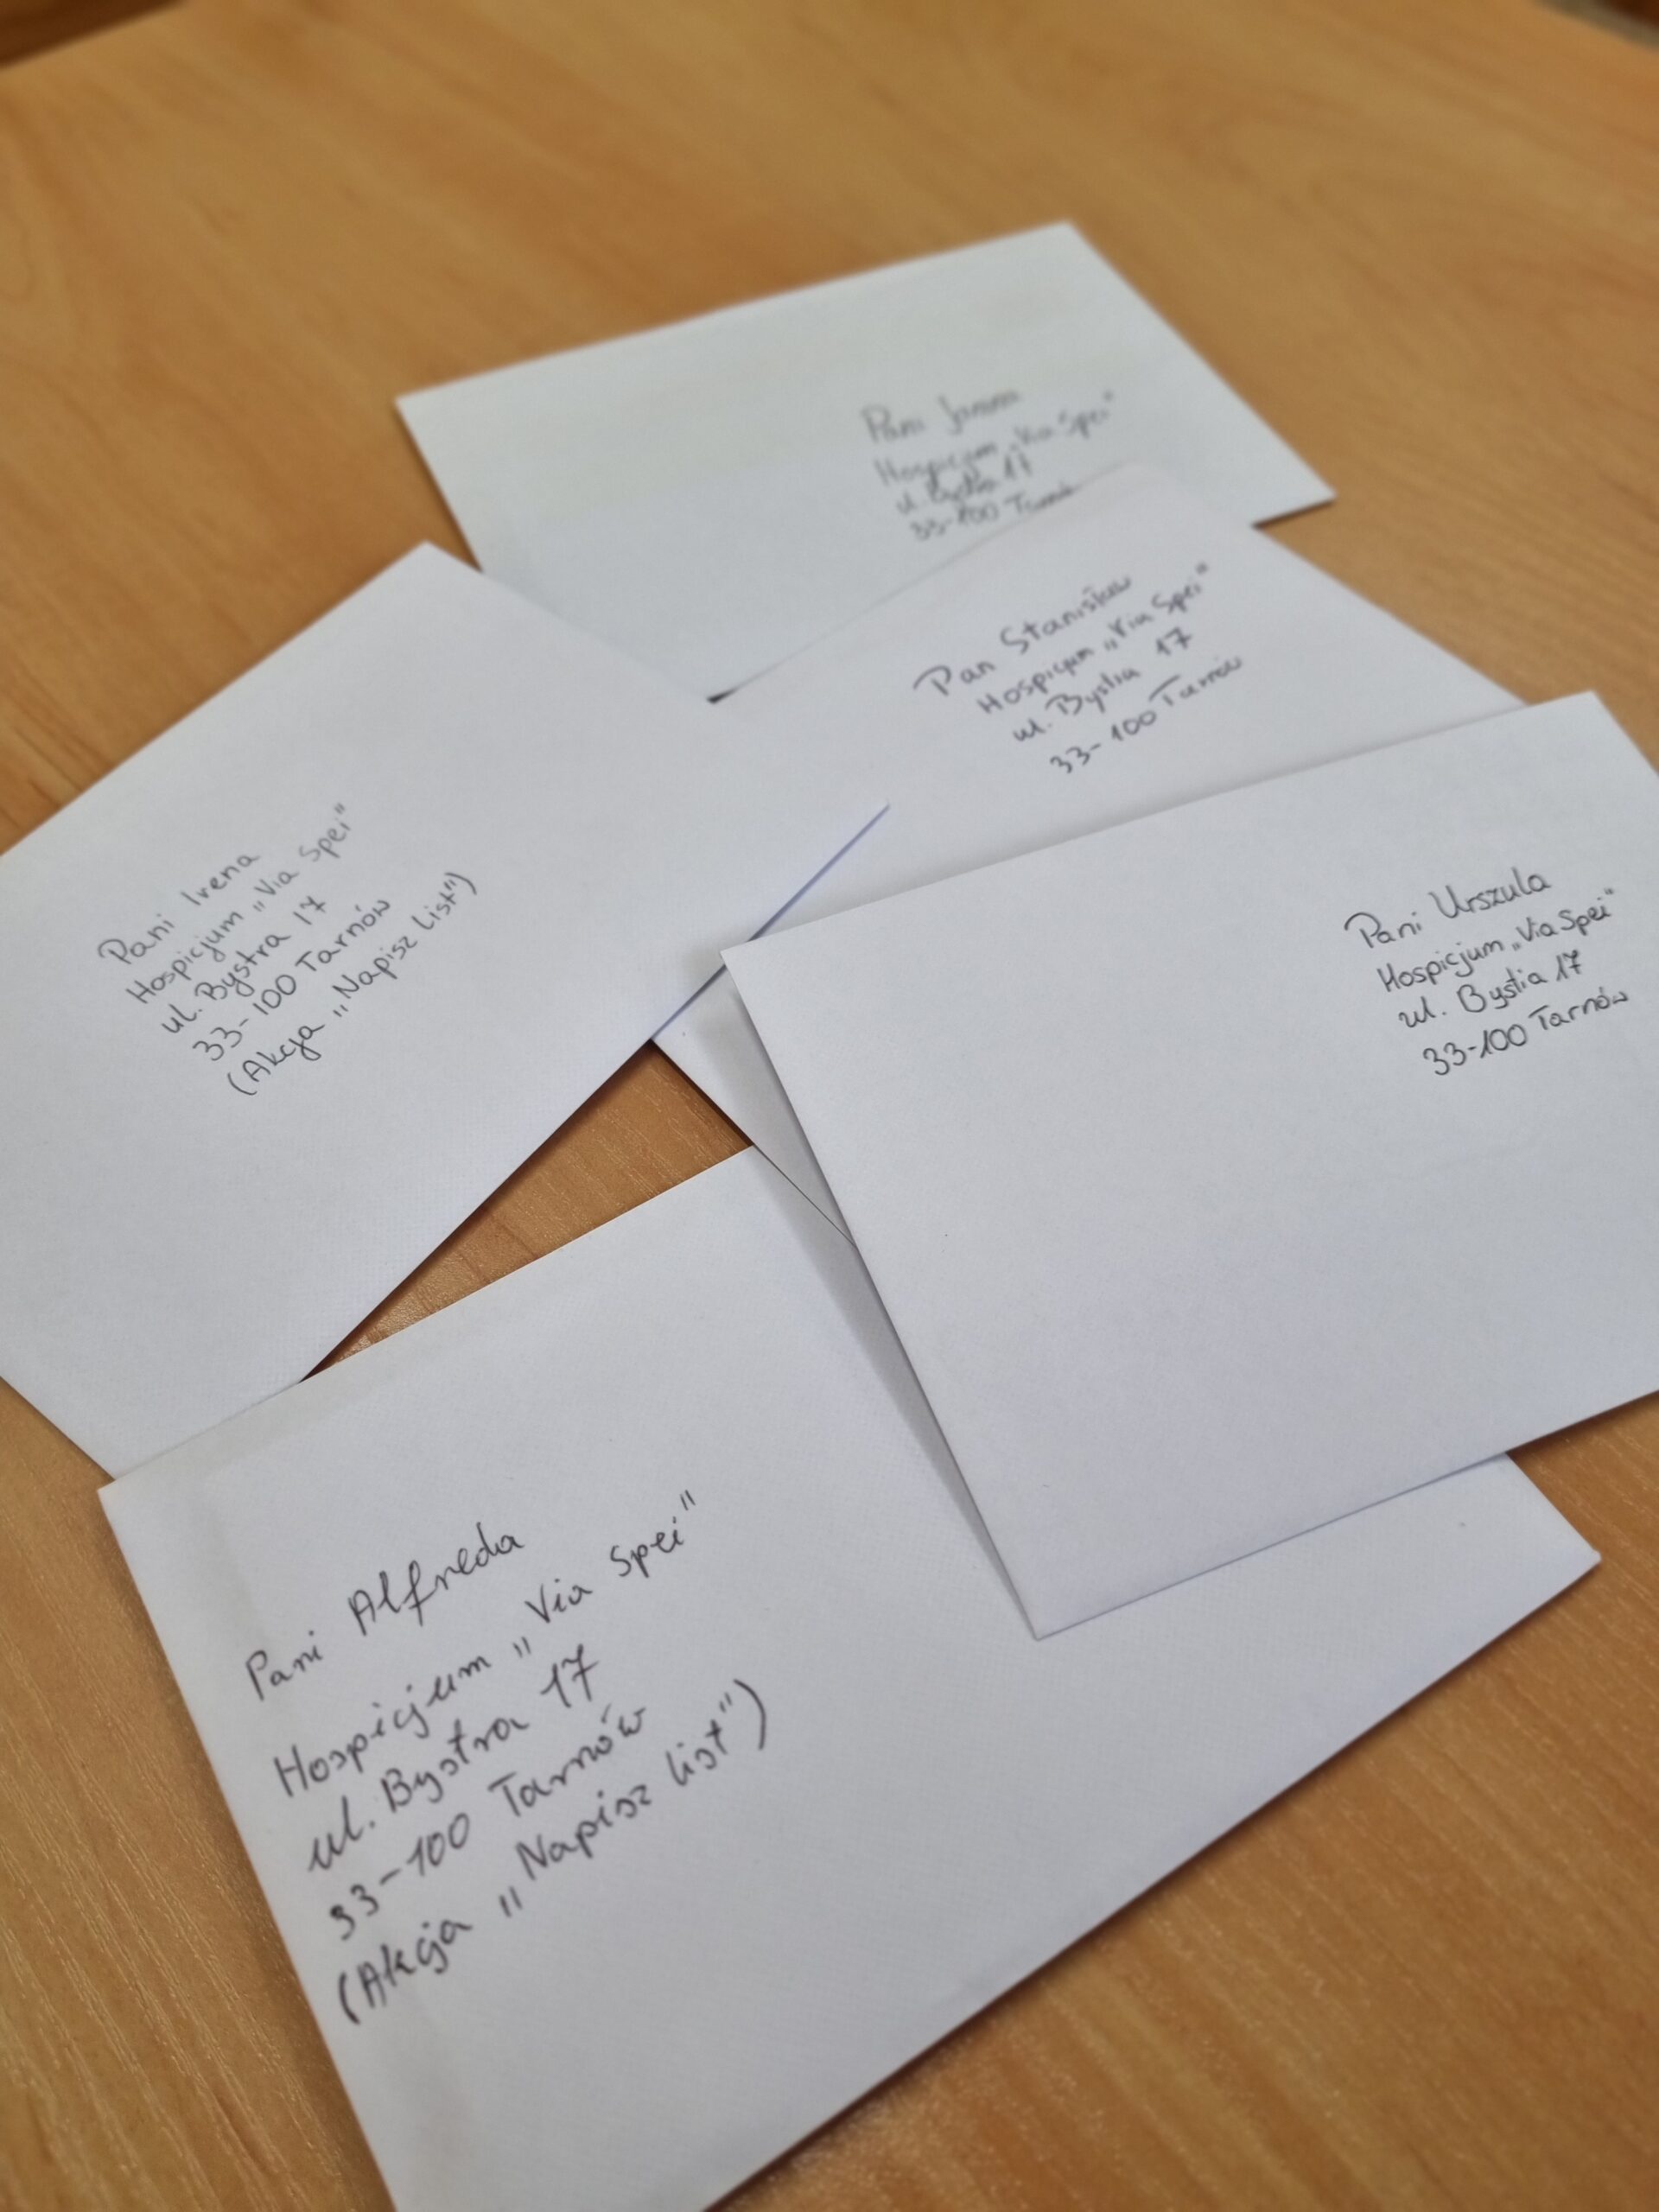 Pani Janina
Hospicjum „Via Spei"
ul. Bystra 17
33-100 Tarnów
Pan Stanisław
Hospicjum „Via Spei"
ul. Bystra 17
33-100 Tarnów
Pani Irena
Hospicjum „Via Spei"
ul. Bystra 17
33-100 Tarnów
(Akcja „Napisz list")
Pani Urszula
Hospicjum „Via Spei"
ul. Bystra 17
33-100 Tarnów
Pani Alfreda
Hospicjum „Via Spei"
ul. Bystra 17
33-100 Tarnów
(Akcja „Napisz list")